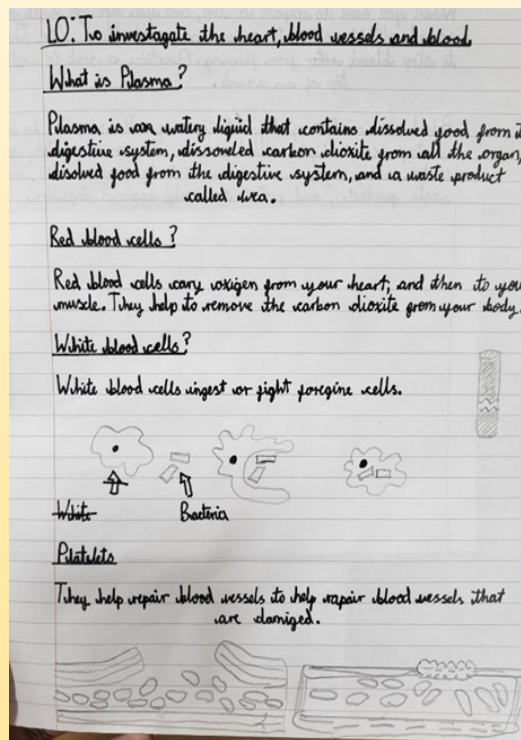 LO: To investagate the heart, blood vessels and blood
What is Plasma?
Plasma is a watery liquid that contains dissolved food from
digestive system, dissovled carbon dioxite from all the organ,
disolved food from the digestive system, and a waste product
called urea.
Red blood cells?
Red blood cells cary oxigen from your heart, and then to you
muscle. They help to remove the carbon dioxite from your body.
White blood cells?
White blood cells ingest or fight foregine cells.
White
Bacteria
Platelets
They help repair blood vessels to help rapair blood vessels that
are damiged.